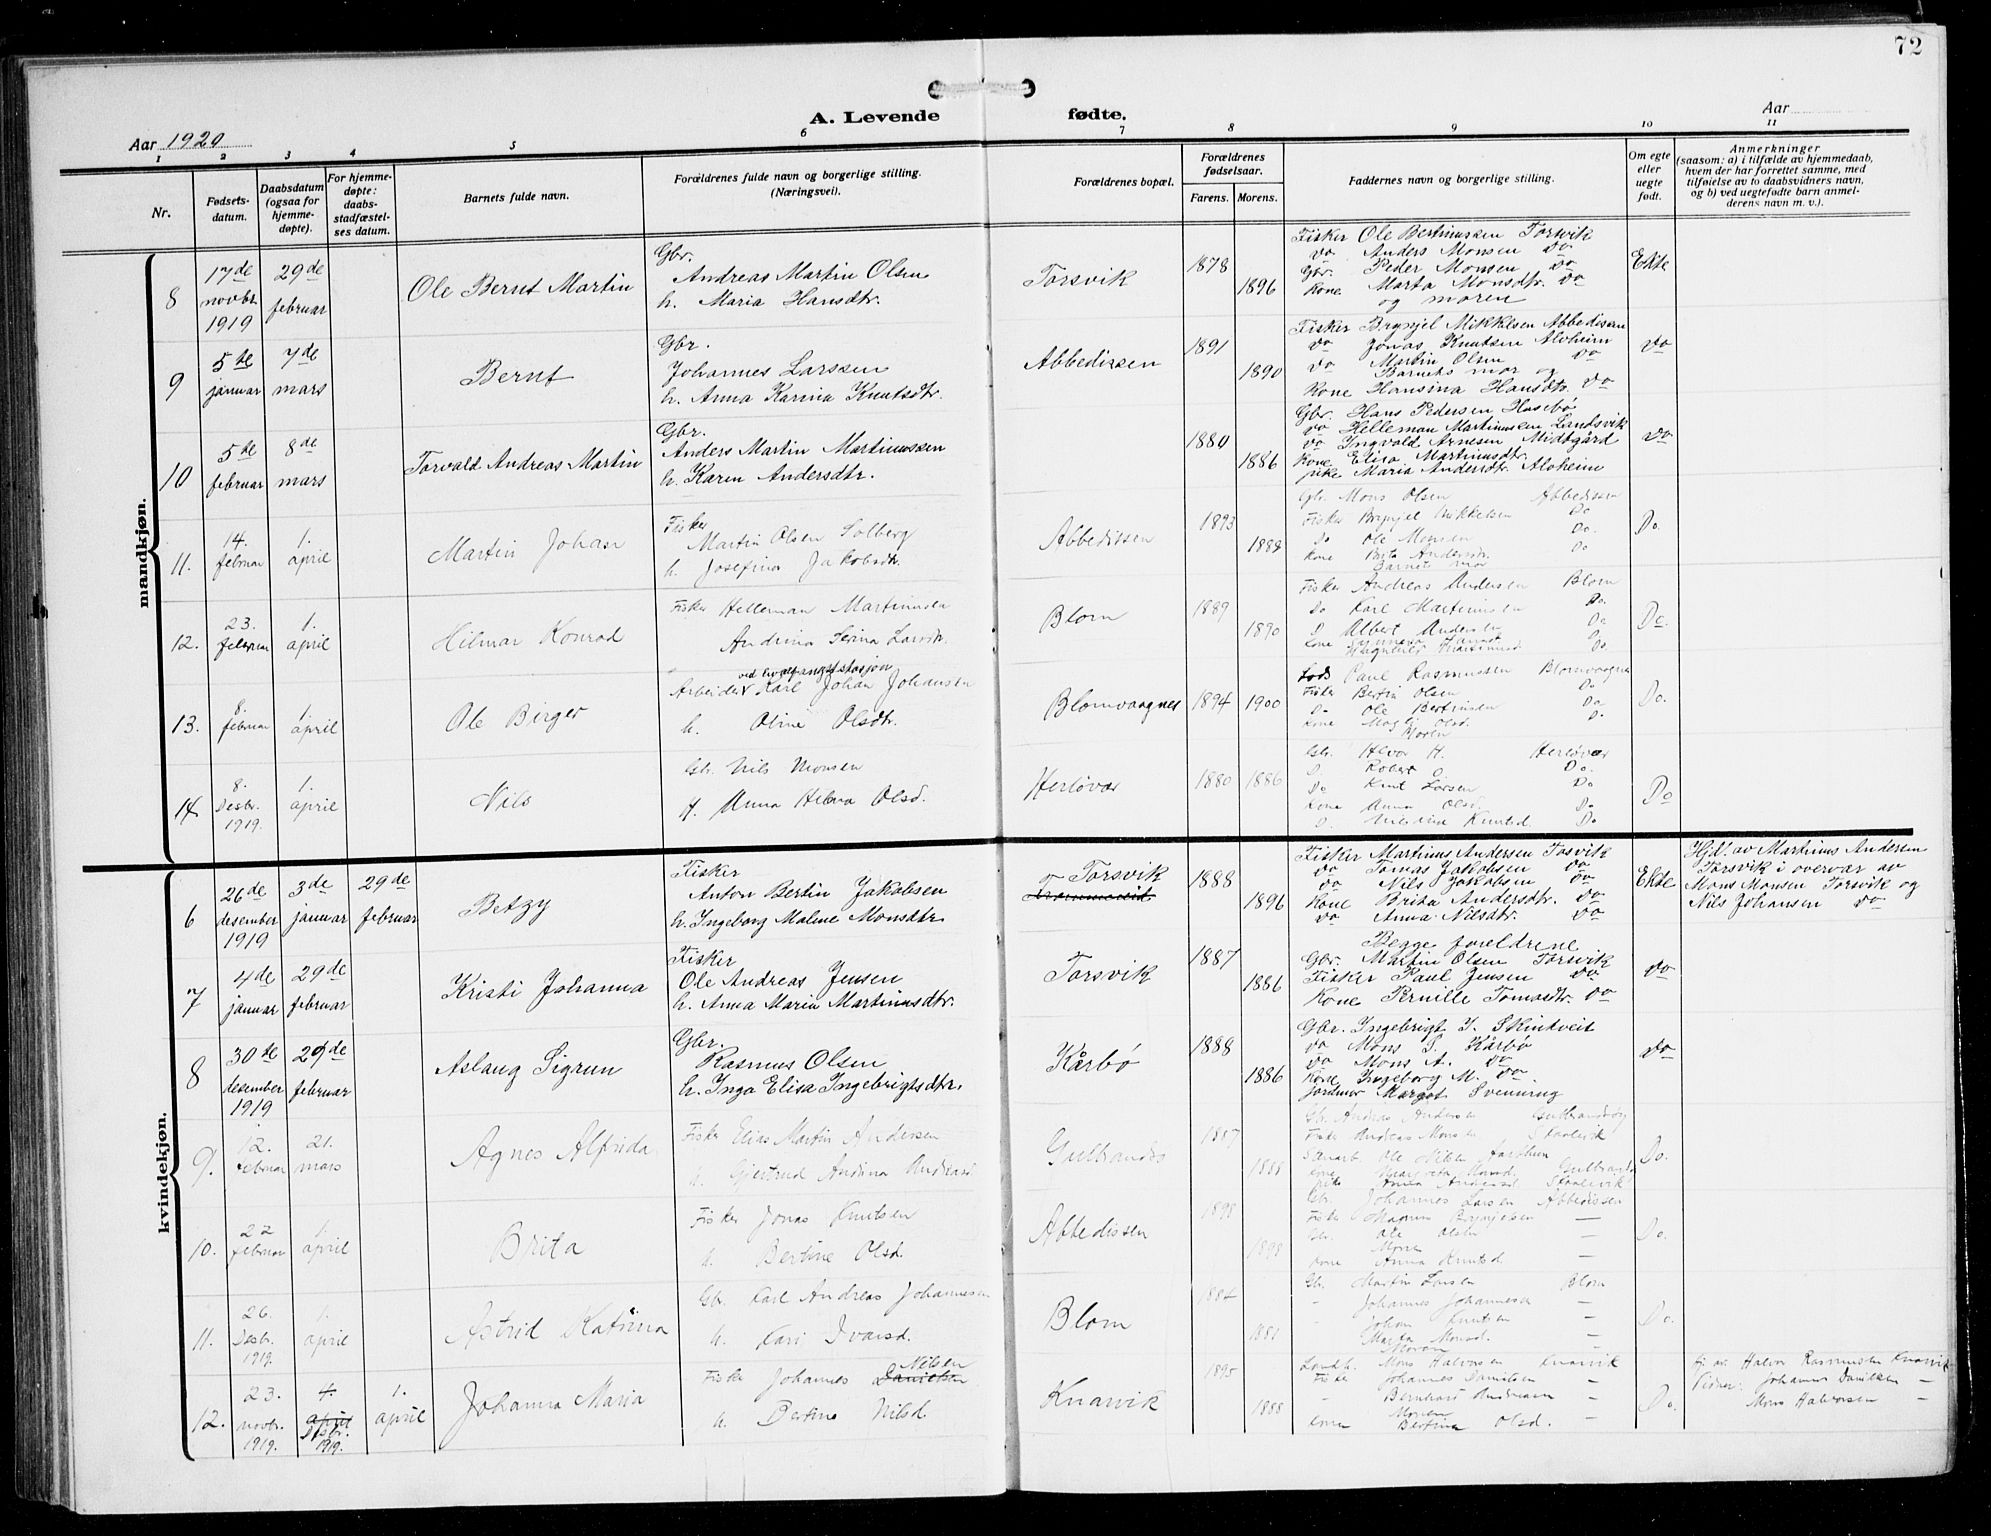 72
A. Levende fødte.
Aar 1920
Aar
1 2 3 4 5 6 7 8 9 10 11
Nr.
Fødsels-
datum.
Daabsdatum
(ogsaa for
hjemme-
døpte).
For hjemme-
døpte:
daabs-
stadfæstel-
ses datum.
Barnets fulde navn.
Forældrenes fulde navn og borgerlige stilling.
(Næringsvei).
Forældrenes bopæl.
Forældrenes
fødselsaar.
Farens. Morens.
Faddernes navn og borgerlige stilling.
Om egte
eller
uegte
født.
Anmerkninger
(saasom: a) i tilfælde av hjemmedaab,
hvem der har forrettet samme, med
tilføielse av to daabsvidners navn,
og b) ved uegtefødte barn anmel-
derens navn m. v.).
mandkjøn.
8
17de
novbr.
1919
29de
februar
Ole Bernt Martin
Gbr.
Andreas Martin Olsen
h. Maria Hansdtr.
Torsvik
1878
1896
Fisker Ole Bertinussen Torsvik
do Anders Monsen do
Gbr. Peder Monsen do
Kone Marta Monsdtr. do
og moren
Ekte
9
5te
januar
7de
mars
Bernt
Gbr.
Johannes Larssen
h. Anna Karina Knutsdtr.
Abbedissen
1891
1890
Fisker Brynjel Mikkelsen Abbedissen
do Jonas Knutsen Aloheim
do Martin Olsen do
Barnets mor og
Kone Hansina Hansdtr. do
do
10
5te
februar
8de
mars
Torvald Andreas Martin
Gbr.
Anders Martin Martinussen
h. Karen Andersdtr.
1880
1886
Gbr. Hans Pedersen Husebø
do Helleman Martinussen Landsvik
do Ingvald Arnesen Midtgård
Kone Elisa Martinusdtr.
pike Maria Andersdtr. Aloheim
do
11.
14.
februar
1.
april
Martin Johan
Fisker
Martin Olsen Solberg
h. Josefina Jakobsdtr.
Abbedissen
1893
1888
Gbr. Mons Olsen Abbedissen
Fisker Brynjel Mikkelsen Do
Do Ole Monsen Do.
Kone Brita Andersdtr. Do
Barnets mor
Do.
12.
23.
februar
1.
april
Hilmar Konrad
Fisker Helleman Martinussen
Andrina Serina Larsdtr.
Blom
1889
1890
Fisker Andreas Andersen Blom
Do Karl Martinussen Do.
D Albert Andersen Do
Do
Do.
Do.
13.
8.
februar
1.
april
Ole Birger
ved hvalfangststasjon
Arbeider Karl Johan Johansen
h. Oline Olsdtr.
Blomvaagnes
1894
1900
Lods Paul Rasmussen Blomvaagnes
Fisker Bertin Olsen Do
Do Ole Bertinsen Do
Kone Magli Olsd. Do.
Moren
Do.
14
8.
Desbr.
1919.
1.
april
Nils
Gbr. Nils Monsen
H. Anna Helena Olsd.
Herløvær
1880
1886
Gbr. Halvor H. Herløvær
D Robert O. Do.
Do Knut Larsen Do
Kone Anna Olsd. Do
D. Knutsd. Do
Do
kvindekjøn.
6
26de
desember
1919
3de
januar
29de
februar
Betzy
Fisker
Anton Bertin Jakobsen
h. Ingeborg Malene Monsdtr.
Torsvik
1888
1896
Fisker Martinus Andersen Torsvik
do Tomas Jakobsen do
do Nils Jakobsen do
Kone Brita Andersdtr. do
do Anna Nilsdtr. do
Ekte
Hjd. av Martinus Andersen
Torsvik i overvær av
Mons Monsen Torsvik og
Nils Johansen do
7
4de
januar
29de
februar
Kristi Johanna
Fisker
Ole Andreas Jensen
h. Anna Maria Martinusdtr.
Torsvik
1887
1886
Begge foreldrene
Gbr. Martin Olsen Torsvik
Fisker Paul Jensen do
Kone Pernille Tomasdtr. do
do
8
30te
desember
1919
29de
februar
Aslaug Sigrun
Gbr.
Rasmus Olsen
h. Inga Elisa Ingebrigtsdtr.
Kårbø
1888
1886
Gbr. Ingebrigt J. Skintveit
do Mons S. Kårbø
do Mons A. do
Kone Ingeborg M. do
jordmor Margot Svenning
do
9.
12.
februar
21.
mars
Agnes Alfrida
Fisker Elias Martin Andersen
h. Gjertrud Andina Andreasd.
Gulbrandsø
1887
1888
Gb. Andreas Andersen Gulbrandsøy
Fisker Andreas Monsen Skaalevik
Ole Nikkelsen
Kone Monsd. Gulbrandsø
pike Anna Andersd. Skaalevik
Do.
10.
22
februar
1.
april
Brita
Fisker Jonas Knutsen
h. Bertine Olsd.
Abbedissen
1898
1898
Gbr. Johannes Larsen Abbedissen
Fisker Magnus Brynjelsen —
Gbr. Ole Olsen —
Moren
Kone Anna Knutsd. —
Do.
11.
26.
Desbr.
1919.
1.
april
Astrid Katrina
Gbr. Karl Andreas Johannesen
h. Kari Ivarsd.
Blom
1884
1881
Gb. Martin Larsen Blom
- Johannes Johannesen —
- Johan Knutsen —
Marta Monsd. —
Moren
Do.
12.
23.
novbr.
1919.
4.
april
Desbr.
1919.
1.
april
Johanna Maria
Nilsen
Fisker Johannes Danielsen
h. Bertine Nilsd.
Knarvik
1895
1888
Landh. Mons Halvorsen Knarvik
Fisker Johannes Danielsen —
- Bernhard Andreasen —
Moren
Kone Bertina Olsd. —
Do.
Hj. av Halvor Rasmussen Knarvik
Vidner: Johannes Danielsen —
Mons Halvorsen —